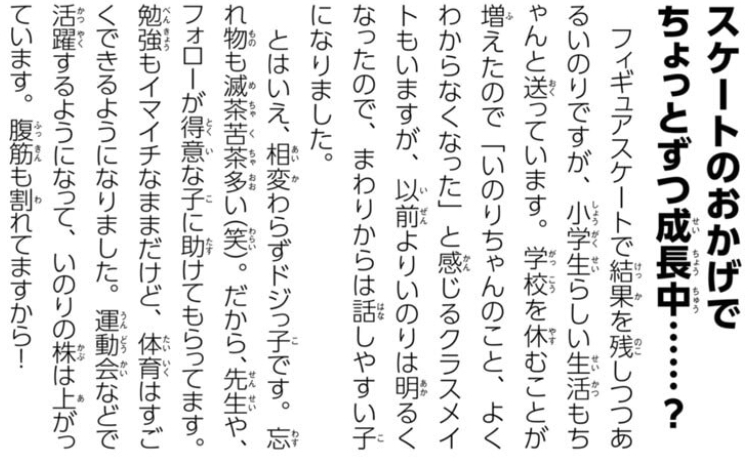 スケートのおかげで
ちょっとずつ成長中……？
　フィギュアスケートで結果を残しつつあ
るいのりですが、小学生らしい生活もち
ゃんと送っています。学校を休むことが
増えたので「いのりちゃんのこと、よく
わからなくなった」と感じるクラスメイ
トもいますが、以前よりいのりは明るく
なったので、まわりからは話しやすい子
になりました。
　とはいえ、相変わらずドジっ子です。忘
れ物も滅茶苦茶多い（笑）。だから、先生や、
フォローが得意な子に助けてもらってます。
勉強もイマイチなままだけど、体育はすご
くできるようになりました。運動会などで
活躍するようになって、いのりの株は上がっ
ています。腹筋も割れてますから！